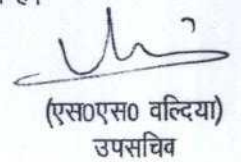 (एस0एस0 वल्दिया)
उपसचिव